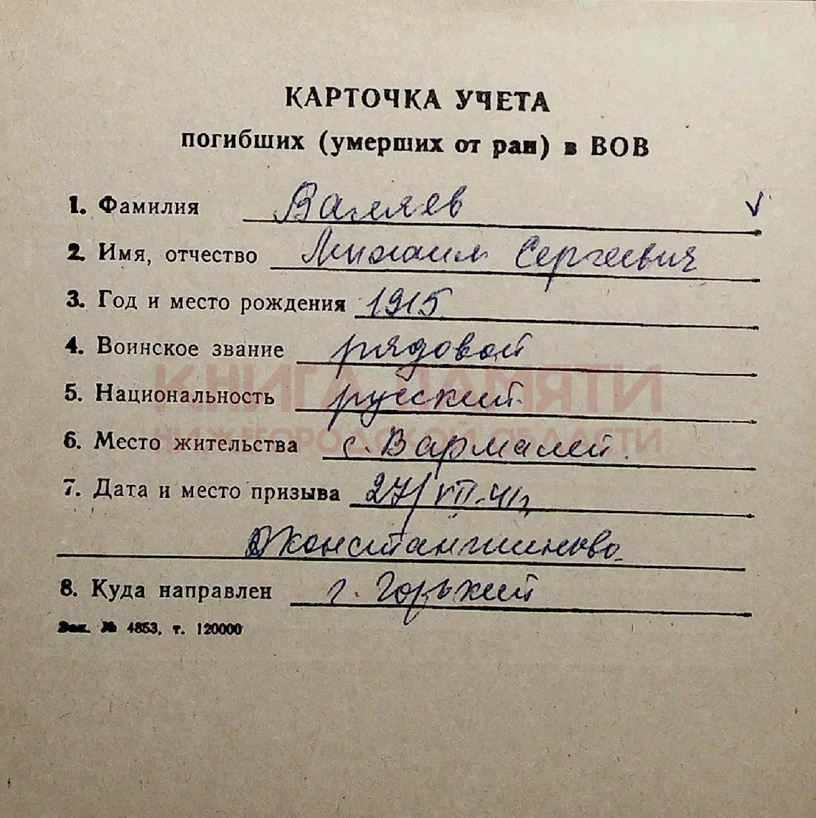 КАРТОЧКА УЧЕТА
погибших (умерших от ран) в ВОВ
1. Фамилия Валяев
2. Имя, отчество Михаил Сергеевич
3. Год и место рождения 1915
4. Воинское звание рядовой
5. Национальность русский
КНИГА ПАМЯТИ
6. Место жительства с. Вармалей
НИЖЕГОРОДСКОЙ ОБЛАСТИ
7. Дата и место призыва 27/VII-41г,
Дконстантиново
8. Куда направлен г. Горький
Зак. № 4853, т. 120000